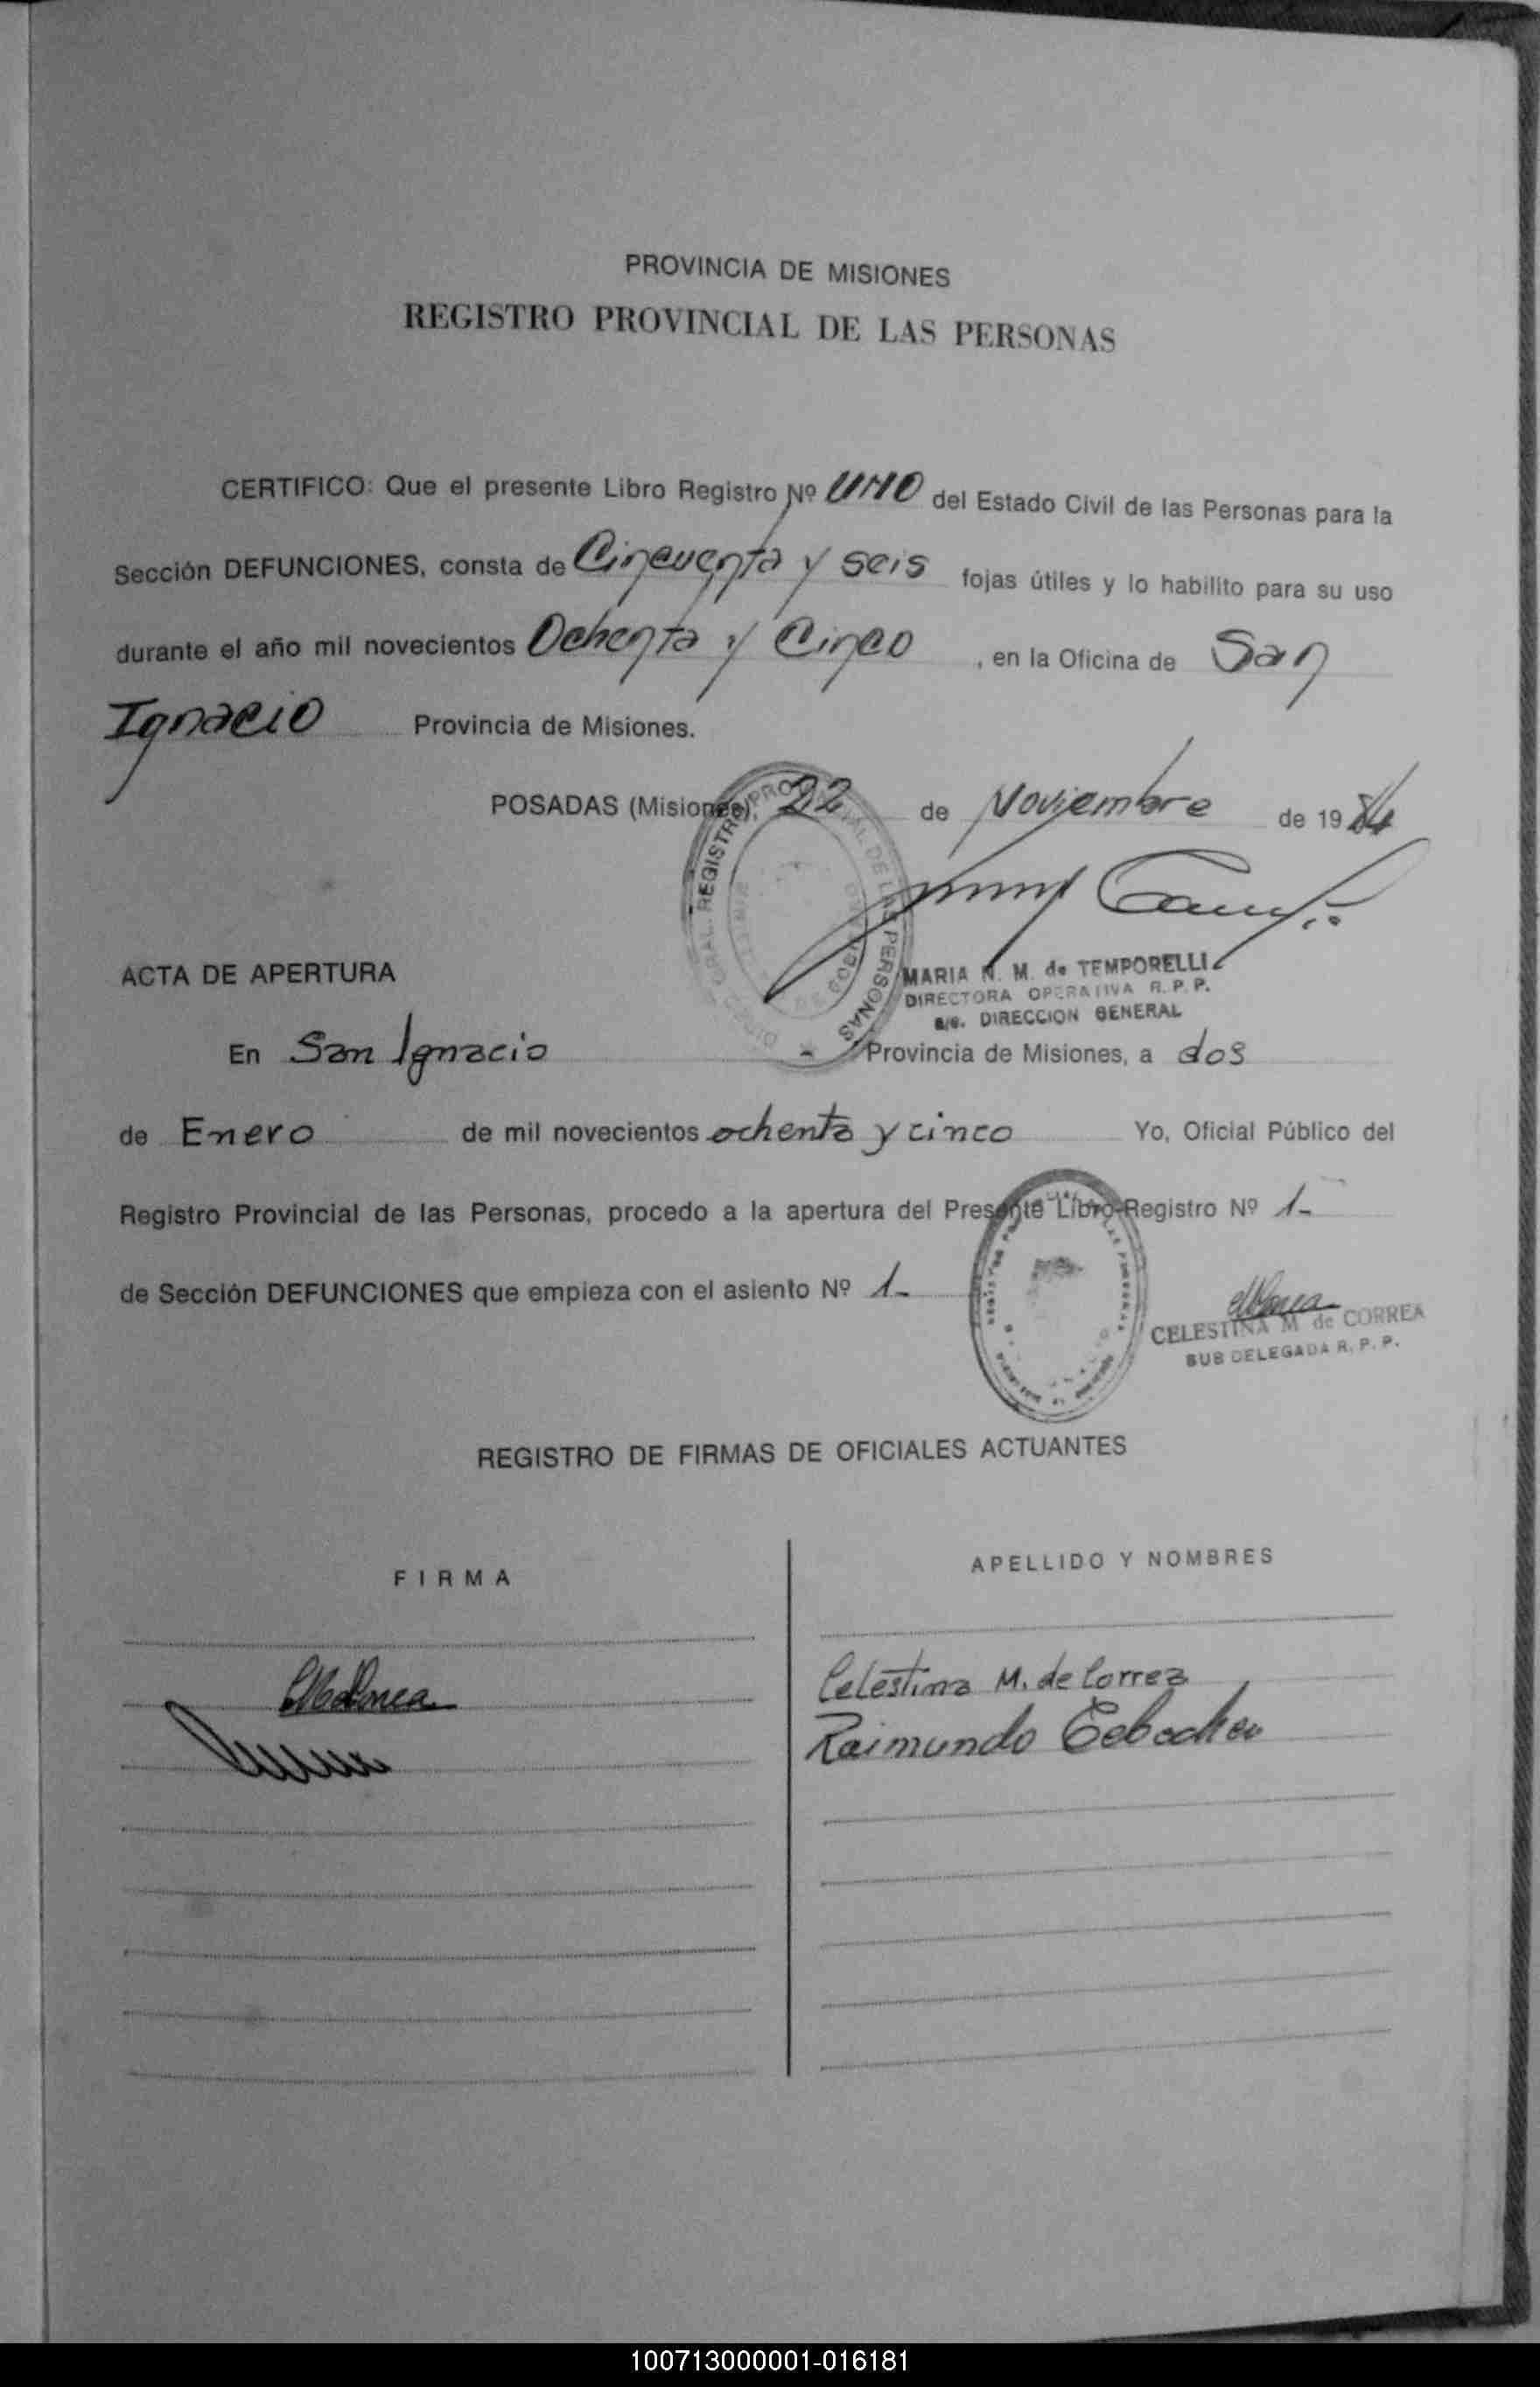 PROVINCIA DE MISIONES
REGISTRO PROVINCIAL DE LAS PERSONAS
CERTIFICO: Que el presente Libro Registro Nº UNO del Estado Civil de las Personas para la
Sección DEFUNCIONES, consta de Cincuenta y seis fojas útiles y lo habilito para su uso
durante el año mil novecientos Ochenta y Cinco , en la Oficina de San
Ignacio Provincia de Misiones.
POSADAS (Misiones), 22 de Noviembre de 1984
MARIA N. M. de TEMPORELLI
DIRECTORA OPERATIVA R. P. P.
a/c. DIRECCION GENERAL
ACTA DE APERTURA
En San Ignacio Provincia de Misiones, a dos
de Enero de mil novecientos ochenta y cinco Yo, Oficial Público del
Registro Provincial de las Personas, procedo a la apertura del Presente Libro Registro Nº 1-
de Sección DEFUNCIONES que empieza con el asiento Nº 1-
CELESTINA M de CORREA
SUB DELEGADA R. P. P.
REGISTRO DE FIRMAS DE OFICIALES ACTUANTES
FIRMA APELLIDO Y NOMBRES
Celestina M. de Correa
Raimundo
100713000001-016181